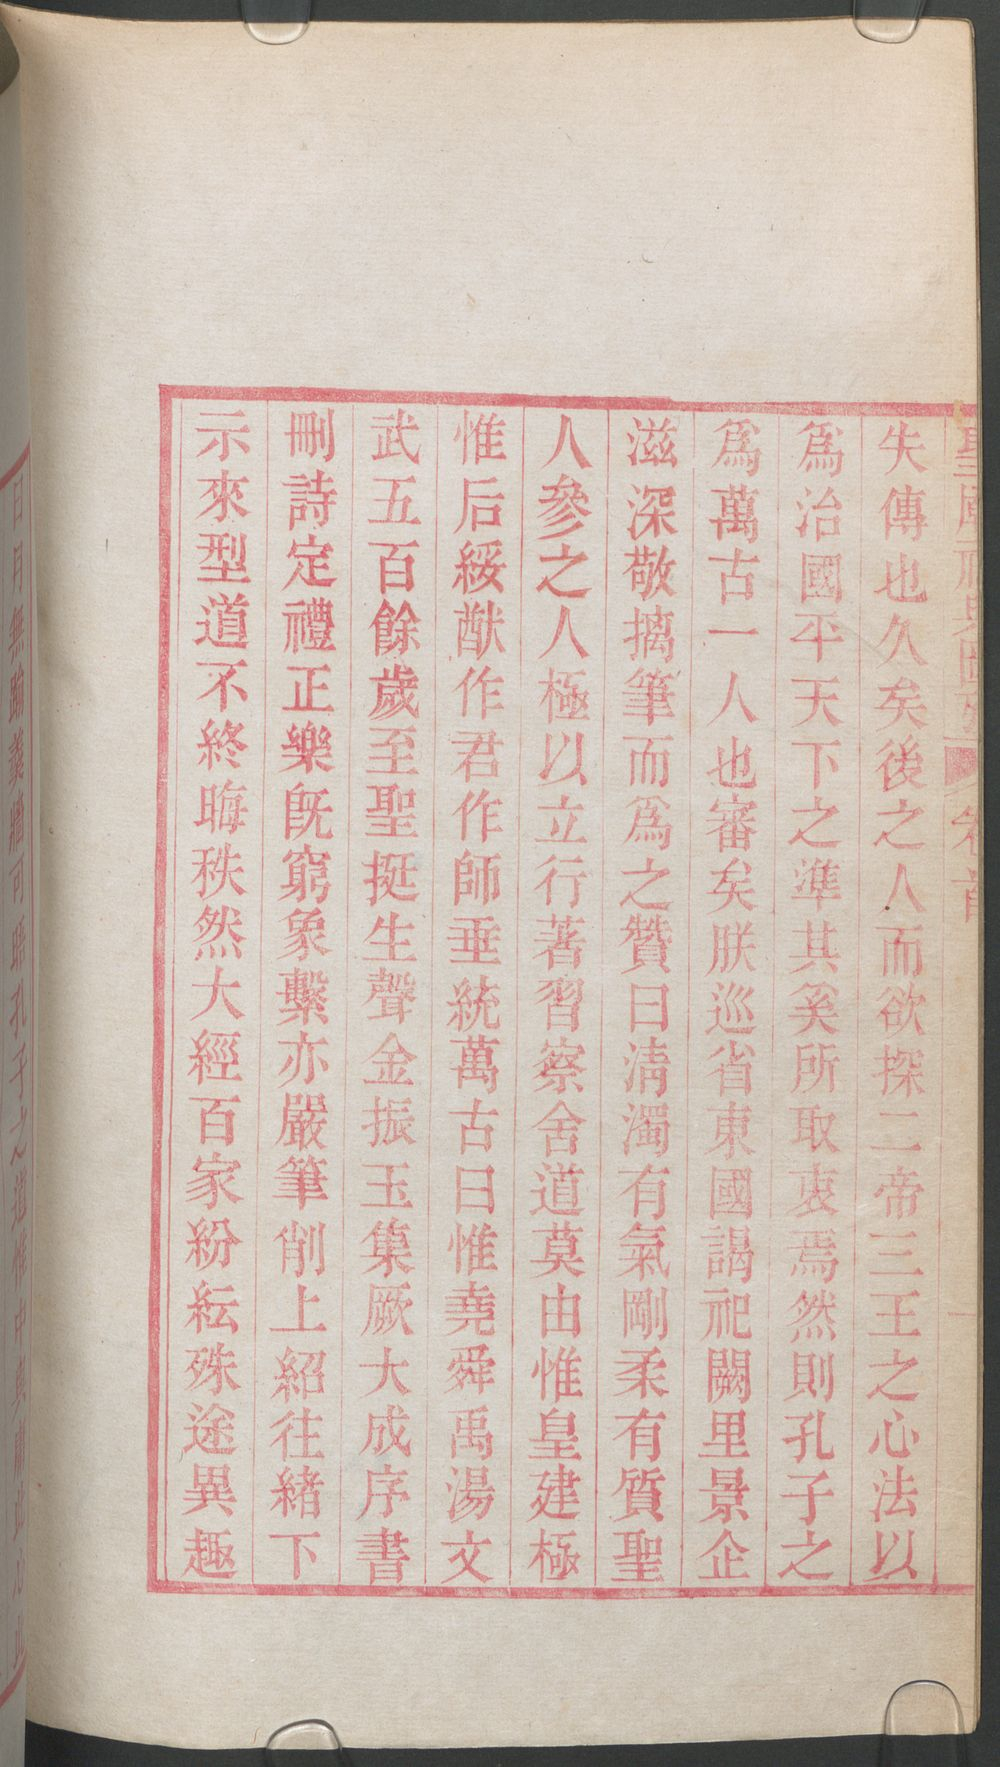 失傳也久矣後之人而欲探二帝三王之心法以
爲治國平天下之準其奚所取衷焉然則孔子之
爲萬古一人也審矣朕巡省東國謁祀闕里景企
滋深敬摛筆而爲之贊曰清濁有氣剛柔有質聖
人參之人極以立行著習察舍道莫由惟皇建極
惟后綏猷作君作師垂統萬古曰惟堯舜禹湯文
武五百餘歲至聖挺生聲金振玉集厥大成序書
刪詩定禮正樂旣窮象繫亦嚴筆削上紹往緒下
示來型道不終晦秩然大經百家紛紜殊途異趣
日月無踰羹牆可晤孔子之道惟中與庸此心此